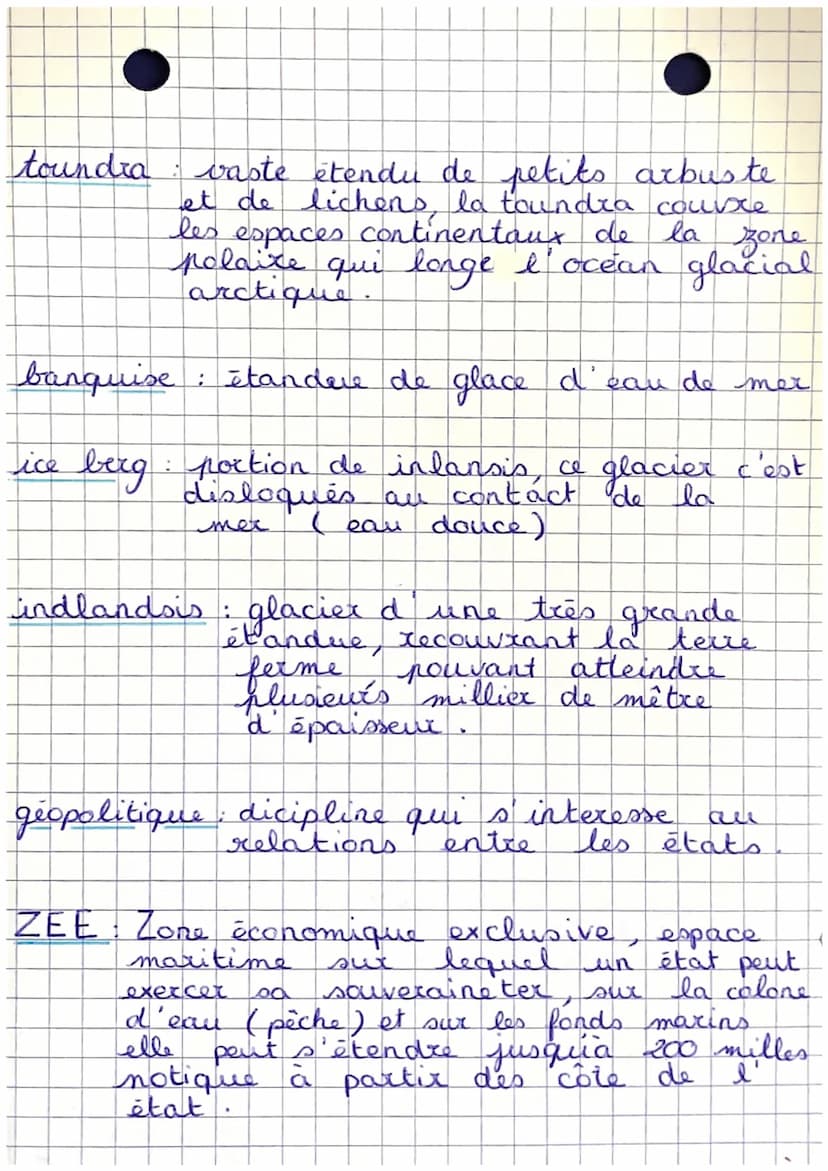 toundra : vaste étendu de petits arbuste
et de lichens, la toundra couvre
les espaces continentaux de la zone
polaire qui longe l'océan glacial
arctique.
banquise : étandue de glace d'eau de mer
ice berg : portion de inlansis, ce glacier c'est
disloqués au contact de la
mer (eau douce)
indlandsis : glacier d'une très grande
étandue, recouvrant la terre
ferme, pouvant atteindre
plusieurs millier de mêtre
d'épaisseur.
géopolitique : dicipline qui s'interesse au
relations entre les états.
ZEE : Zone économique exclusive, espace
maritime sur lequel un état peut
exercer sa souveraineter, sur la colone
d'eau (pêche) et sur les fonds marins
elle peut s'étendre jusqu'à 200 milles
notique à partir des côte de l'
état.